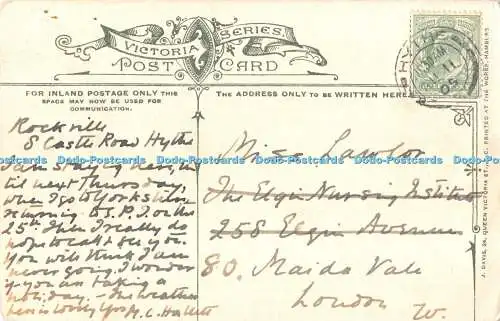 VICTORIA SERIES
POST CARD
FOR INLAND POSTAGE ONLY THIS
SPACE MAY NOW BE USED FOR
COMMUNICATION.
THE ADDRESS ONLY TO BE WRITTEN HERE
Rockville
8 Castle Road Hythe
I am staying here,
til next Thursday,
when I go to Yorkshire
returning on the
25th. then I really do
hope to call & see you.
You will think I am
never going. I wonder
if you are taking a
holiday. — The weather
here is lovely Yrs
Miss Lawlor
The Elgin Nursing Institute
258 Elgin Avenue
80. Maida Vale
London
W.
J. DAVIS, 24, QUEEN VICTORIA ST., E.C. PRINTED AT THE WORKS, HAMBURG
HYTHE
11
05
Dodo-Postcards Dodo-Postcards Dodo-Postcards Dodo-Postcards Dodo-Postcards